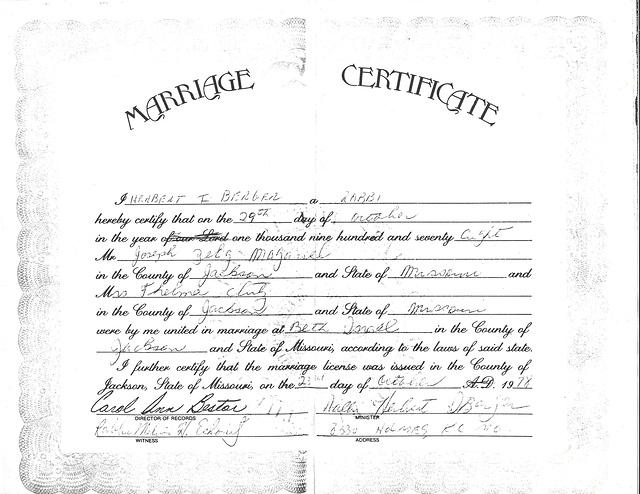 MARRIAGE CERTIFICATE
I HERBERT I BERGER a RABBI
hereby certify that on the 29th day of October
in the year of our Lord one thousand nine hundred and seventy eight
Mr. Joseph
in the County of Jackson and State of Missouri and
Mrs Thelma
in the County of Jackson and State of Missouri
were by me united in marriage at Beth Israel in the County of
Jackson and State of Missouri, according to the laws of said state.
I further certify that the marriage license was issued in the County of
Jackson, State of Missouri, on the day of October A.D. 1978
Carol Ann Rabbi Herbert
DIRECTOR OF RECORDS MINISTER
Rabbi HOLMES, K.C. MO
WITNESS ADDRESS